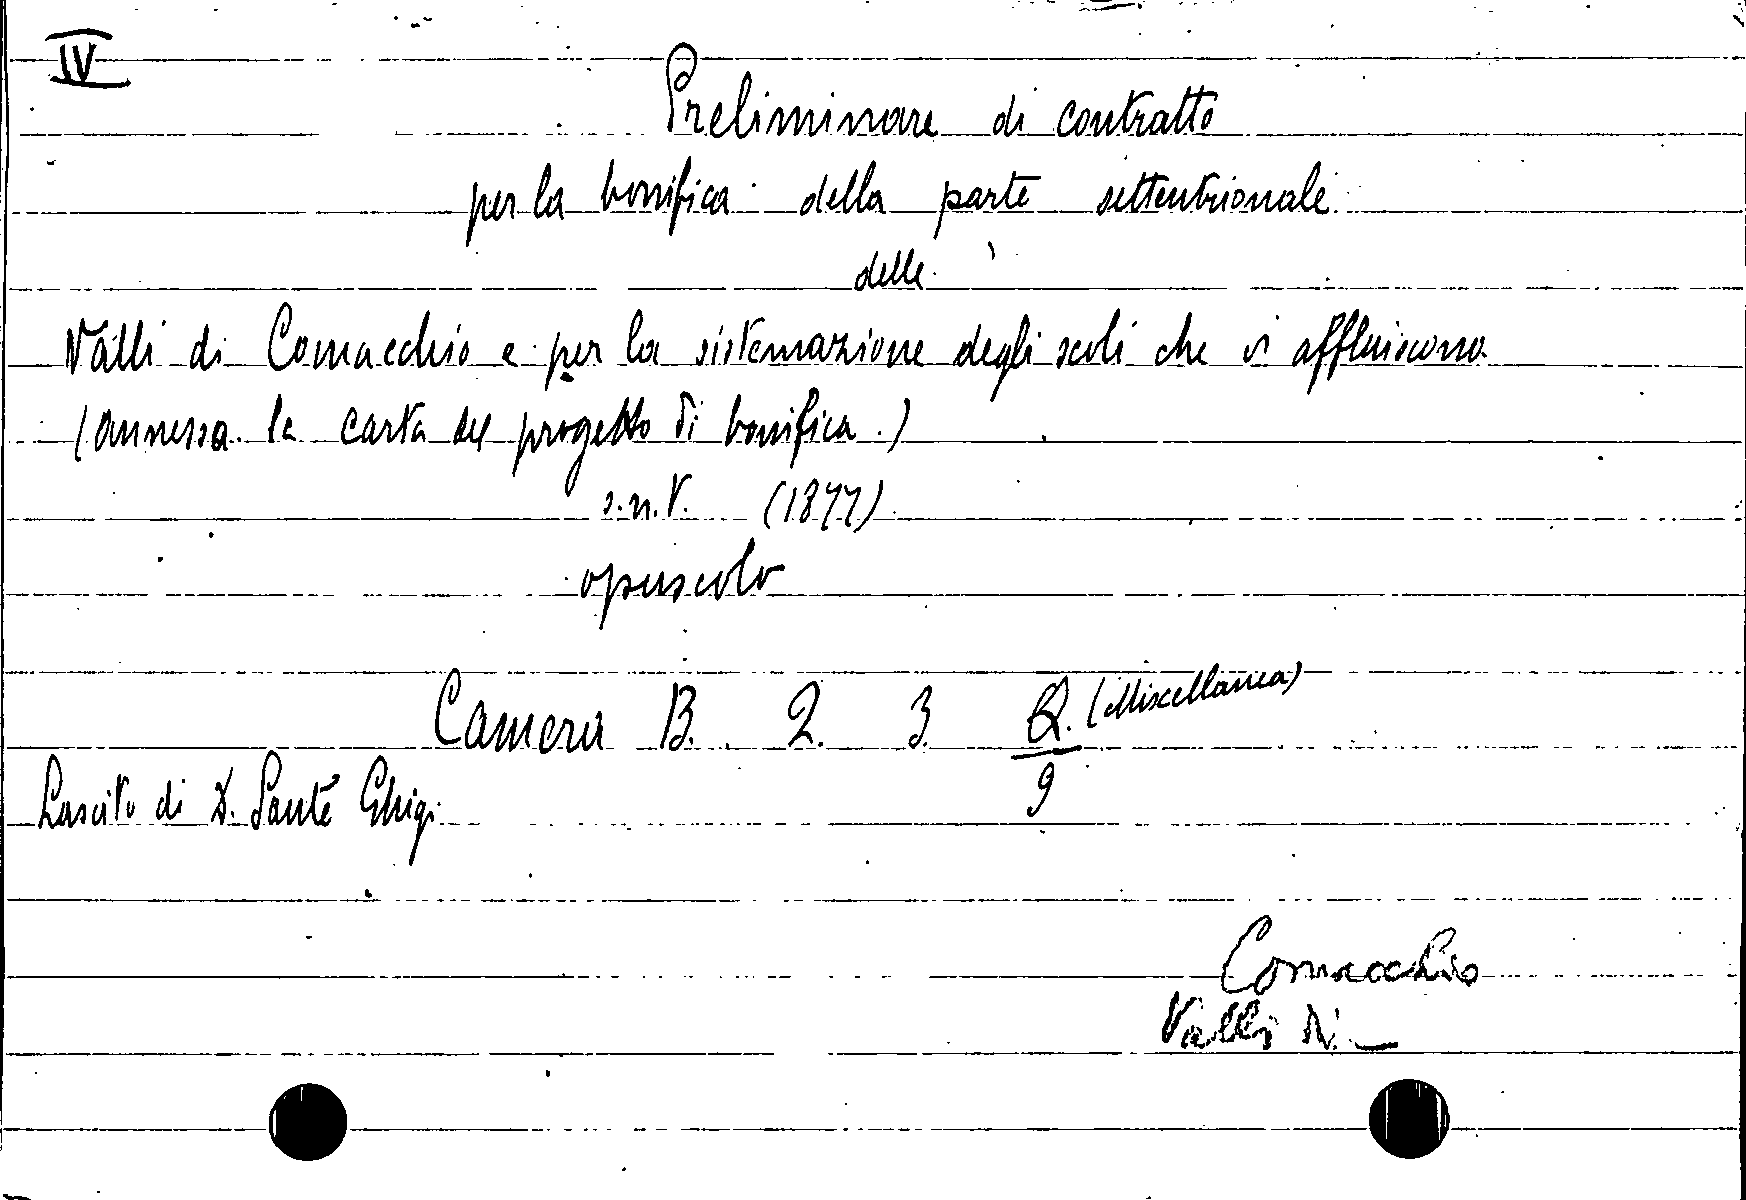 IV
Preliminare di contratto
per la bonifica della parte settentrionale
delle
Valli di Comacchio e per la sistemazione degli scoli che vi affluiscono
(annessa la carta del progetto di bonifica.)
s.n.t. (1877)
opuscolo
Camera B. 2. 3. Q. (Miscellanea)
9
Lascito di D. Sante Ghigi
Comacchio
Valli di —